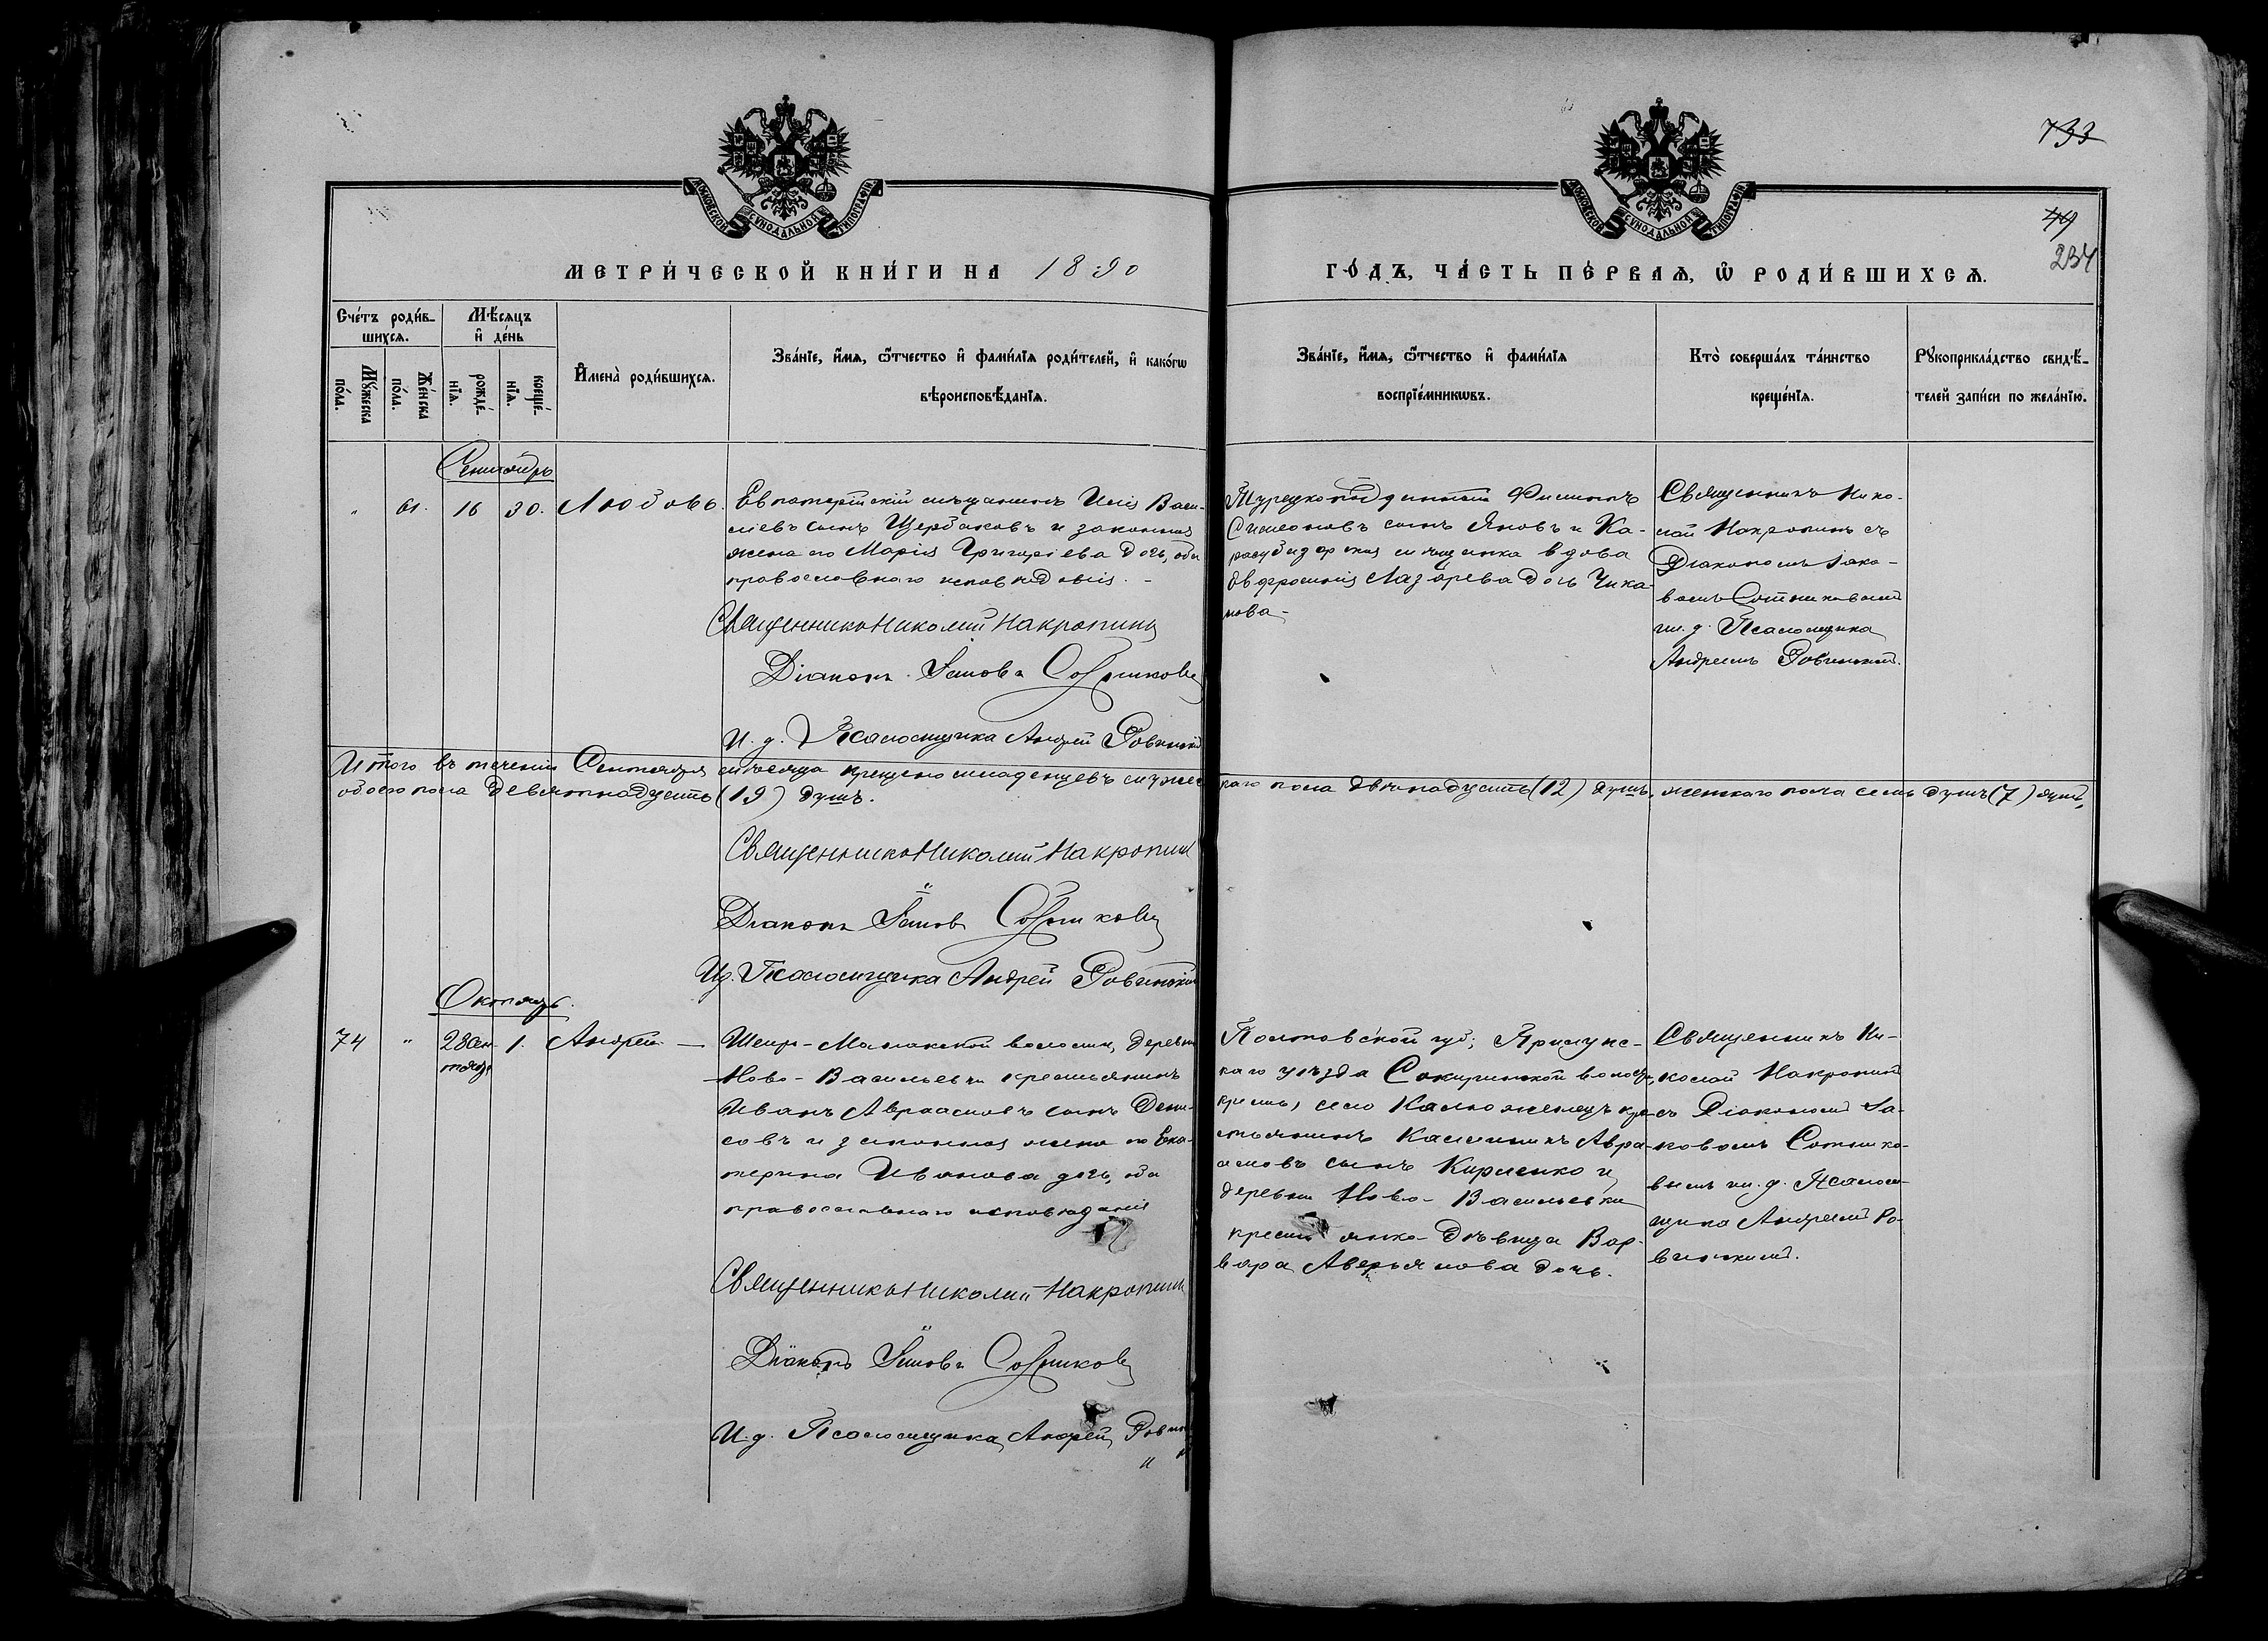 733
49
234
МОСКОВСКОЙ СѴНОДАЛЬНОЙ ТИПОГРАФІИ
МОСКОВСКОЙ СѴНОДАЛЬНОЙ ТИПОГРАФІИ
МЕТРИ́ЧЕСКОЙ КНИ́ГИ НА 1890
ГО́ДЪ, ЧА́СТЬ ПЕ́РВАѦ, Ѽ РОДИ́ВШИХСѦ.
Сче́тъ роди́в-
шихсѧ.
Мѣ́сѧцъ
и҆ де́нь
Му́жеска
по́ла.
Же́нска
по́ла.
рожде́-
нїѧ.
креще́-
нїѧ.
И҆мена̀ роди́вшихсѧ.
Зва́нїе, и҆́мѧ, ѻ҆́тчество и҆ фами́лїѧ роди́телей, и҆ како́гѡ
вѣроисповѣ́данїѧ.
Зва́нїе, и҆́мѧ, ѻ҆́тчество и҆ фами́лїѧ
воспрїе́мникѡвъ.
Кто̀ соверша́лъ та́инство
креще́нїѧ.
Рꙋкоприкла́дство свидѣ́-
телей за́писи по жела́нїю.
Сентябрь
" 61. 16 30. Любовь.
Евпаторійскій мѣщанинъ Илія Васи-
ліевъ сынъ Щербаковъ и законная
жена его Марія Григоріева дочь, оба
православнаго исповѣданія. -
Священникъ Николай Накропинъ
Діаконъ Іаковъ Сотниковъ
И. д. Псаломщика Андрей Ровинскій
Турецкоподданный Филиппъ
Симеоновъ сынъ Яновъ и Ка-
расубазарская мѣщанка вдова
Евфросинія Лазарева дочь Чика-
нова -
Священникъ Нико-
лай Накропинъ съ
Діакономъ Іако-
вомъ Сотниковымъ
и и. д. Псаломщика
Андреемъ Ровинскимъ.
Итого въ теченіи Сентября мѣсяца крещено младенцевъ мужес
каго пола двѣнадцать (12) душъ, женскаго пола семь душъ (7) душъ,
обоего пола девятнадцать (19) душъ.
Священникъ Николай Накропинъ
Діаконъ Іаковъ Сотниковъ
И. д. Псаломщика Андрей Ровинскій
Октябрь.
74 " 28 Сен- 1. Андрей —
тября
Шеих-Монакской волости, деревни
Ново-Васильевки крестьянинъ
Иванъ Авраамовъ сынъ Дени-
совъ и законная жена его Ека-
терина Иванова дочь, оба
православнаго исповѣданія
Священникъ Николай Накропинъ
Діаконъ Іаковъ Сотниковъ
И. д. Псаломщика Андрей Ровинскій
Полтавской губ; Прилукс-
каго уѣзда Сокиринской волости,
села кре-
стьянинъ Авра-
амовъ сынъ Кириенко и
деревни Ново-Васильевки
крестьянка-дѣвица Вар-
вара Аверьянова дочь.
Священникъ Ни-
колай Накропинъ
съ Діакономъ Іа-
ковомъ Сотнико-
вымъ и и. д. Псалом-
щика Андреемъ Ро-
винскимъ.